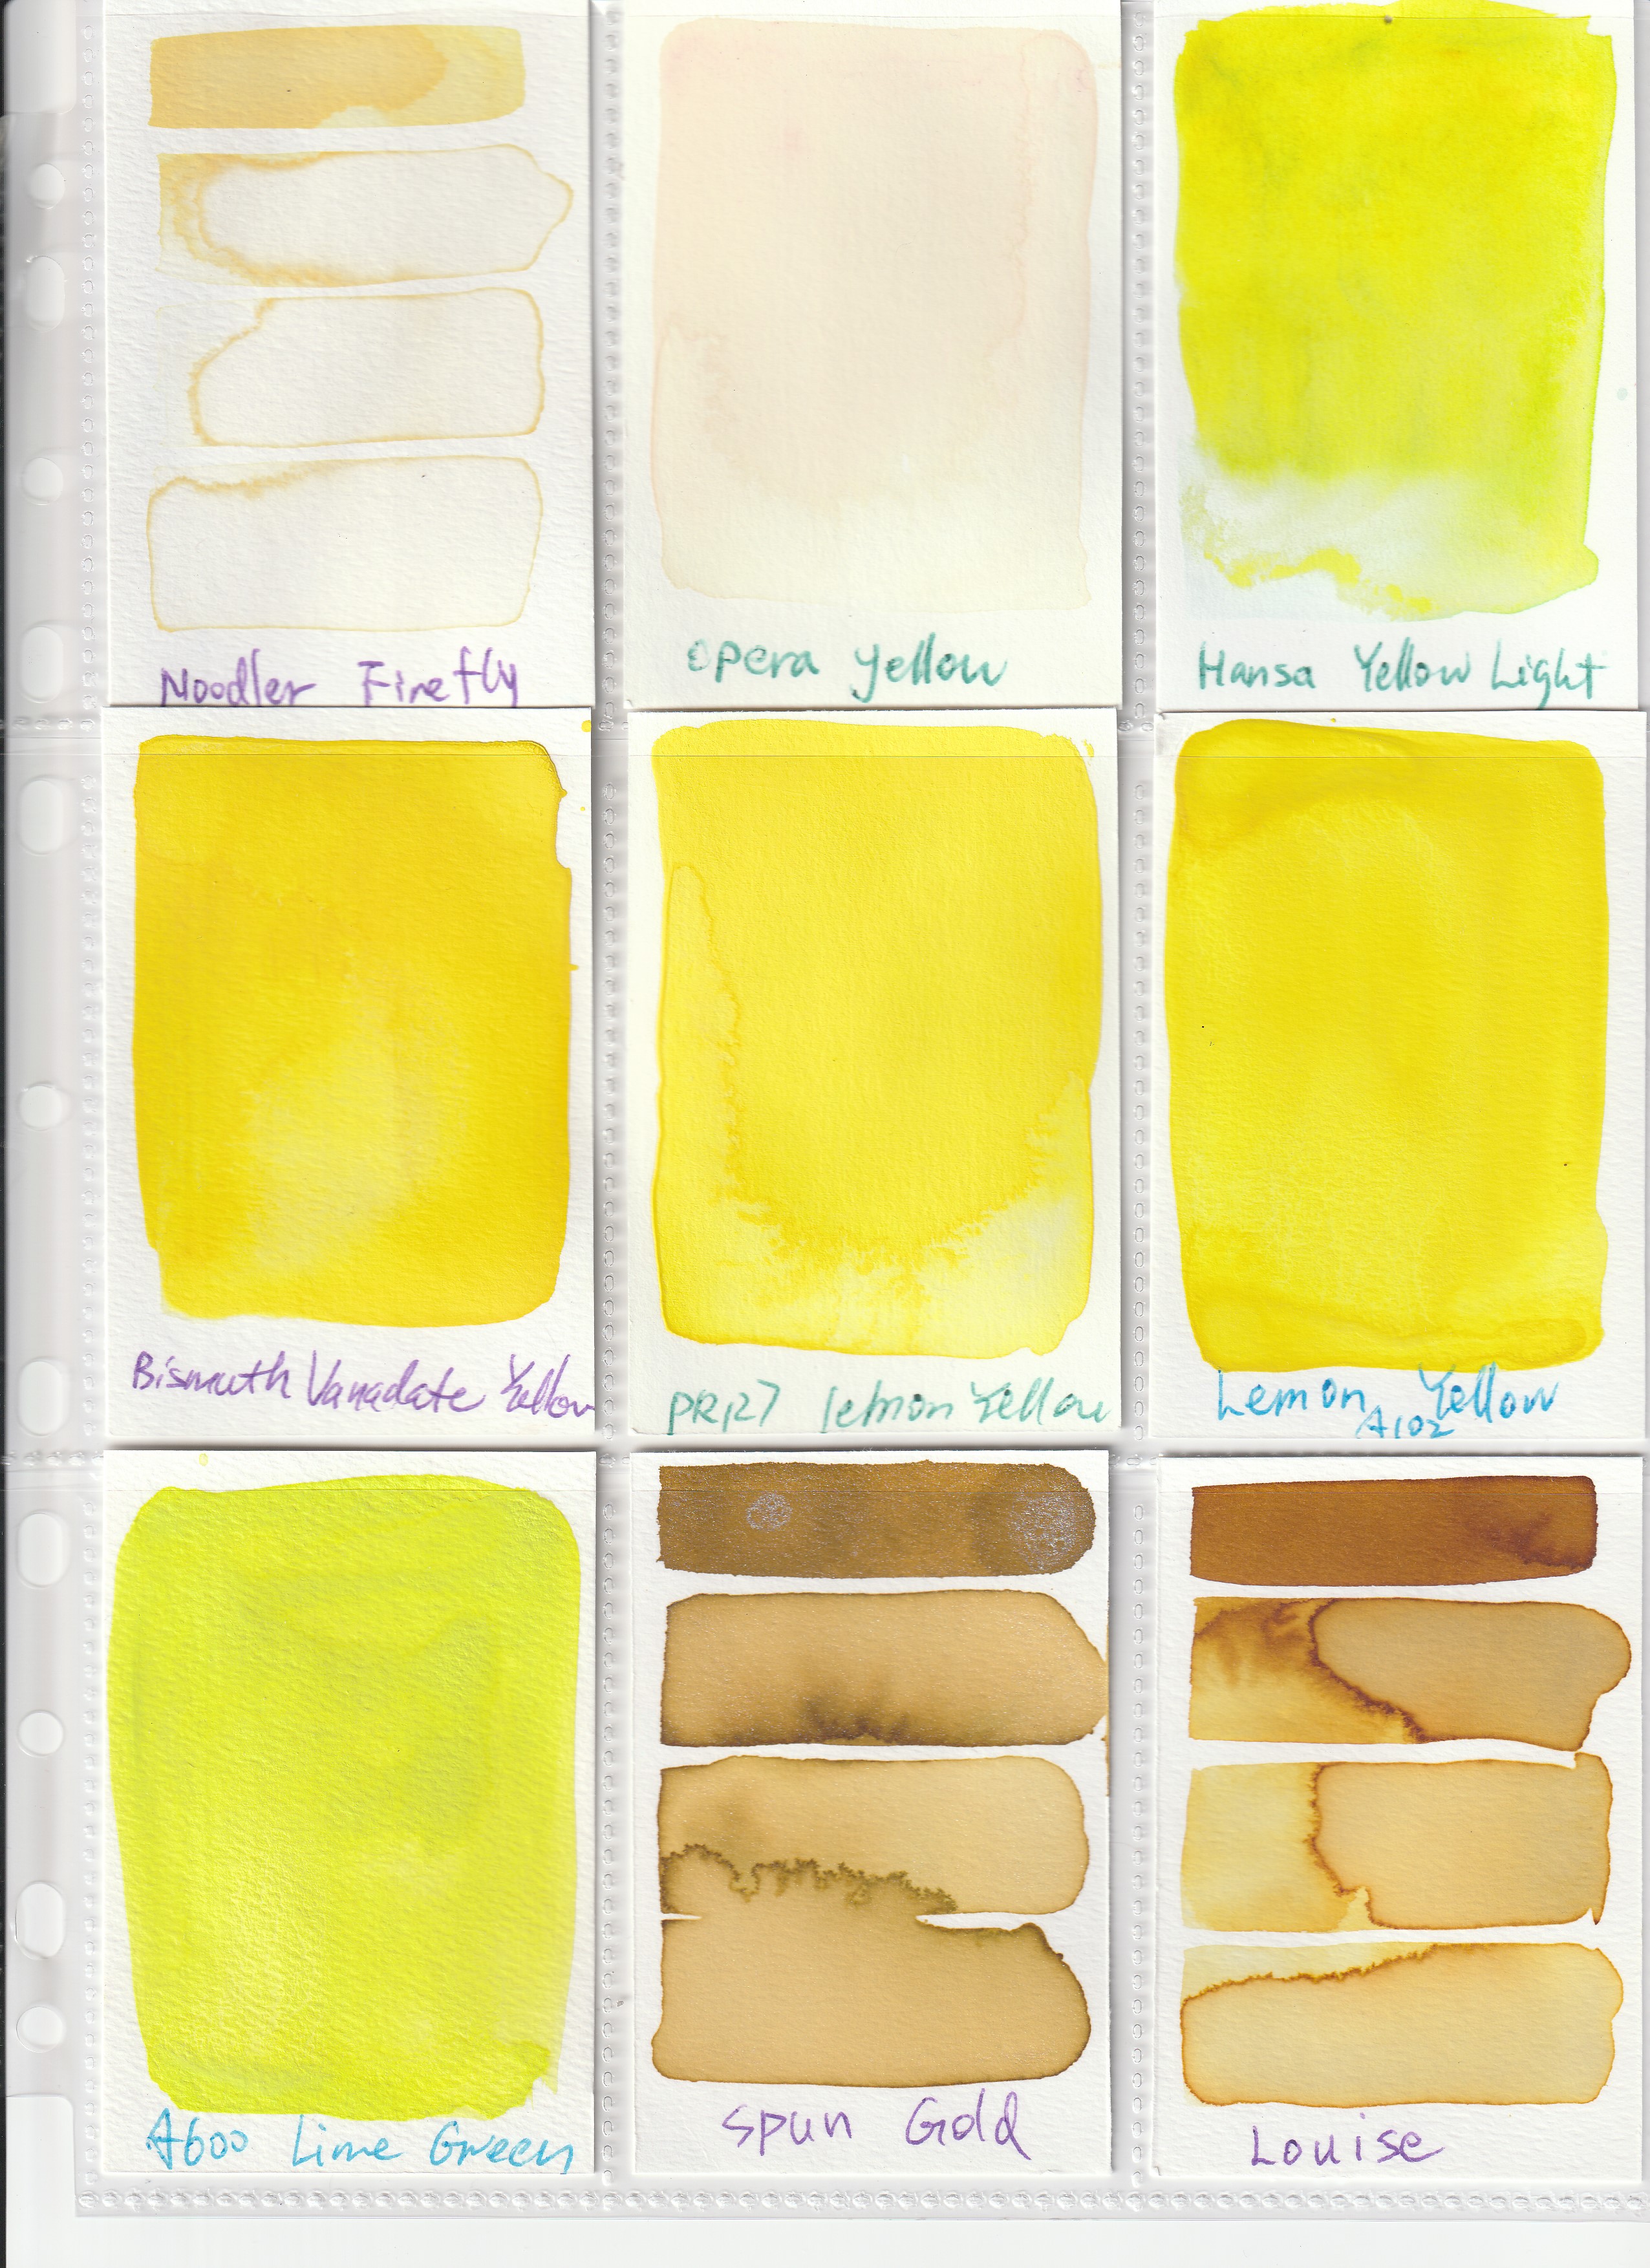 Noodler Firefly
Opera Yellow
Hansa Yellow Light
Bismuth Vanadate Yellow
PR127 lemon Yellow
Lemon Yellow
A102
A600 Lime Green
Spun Gold
Louise